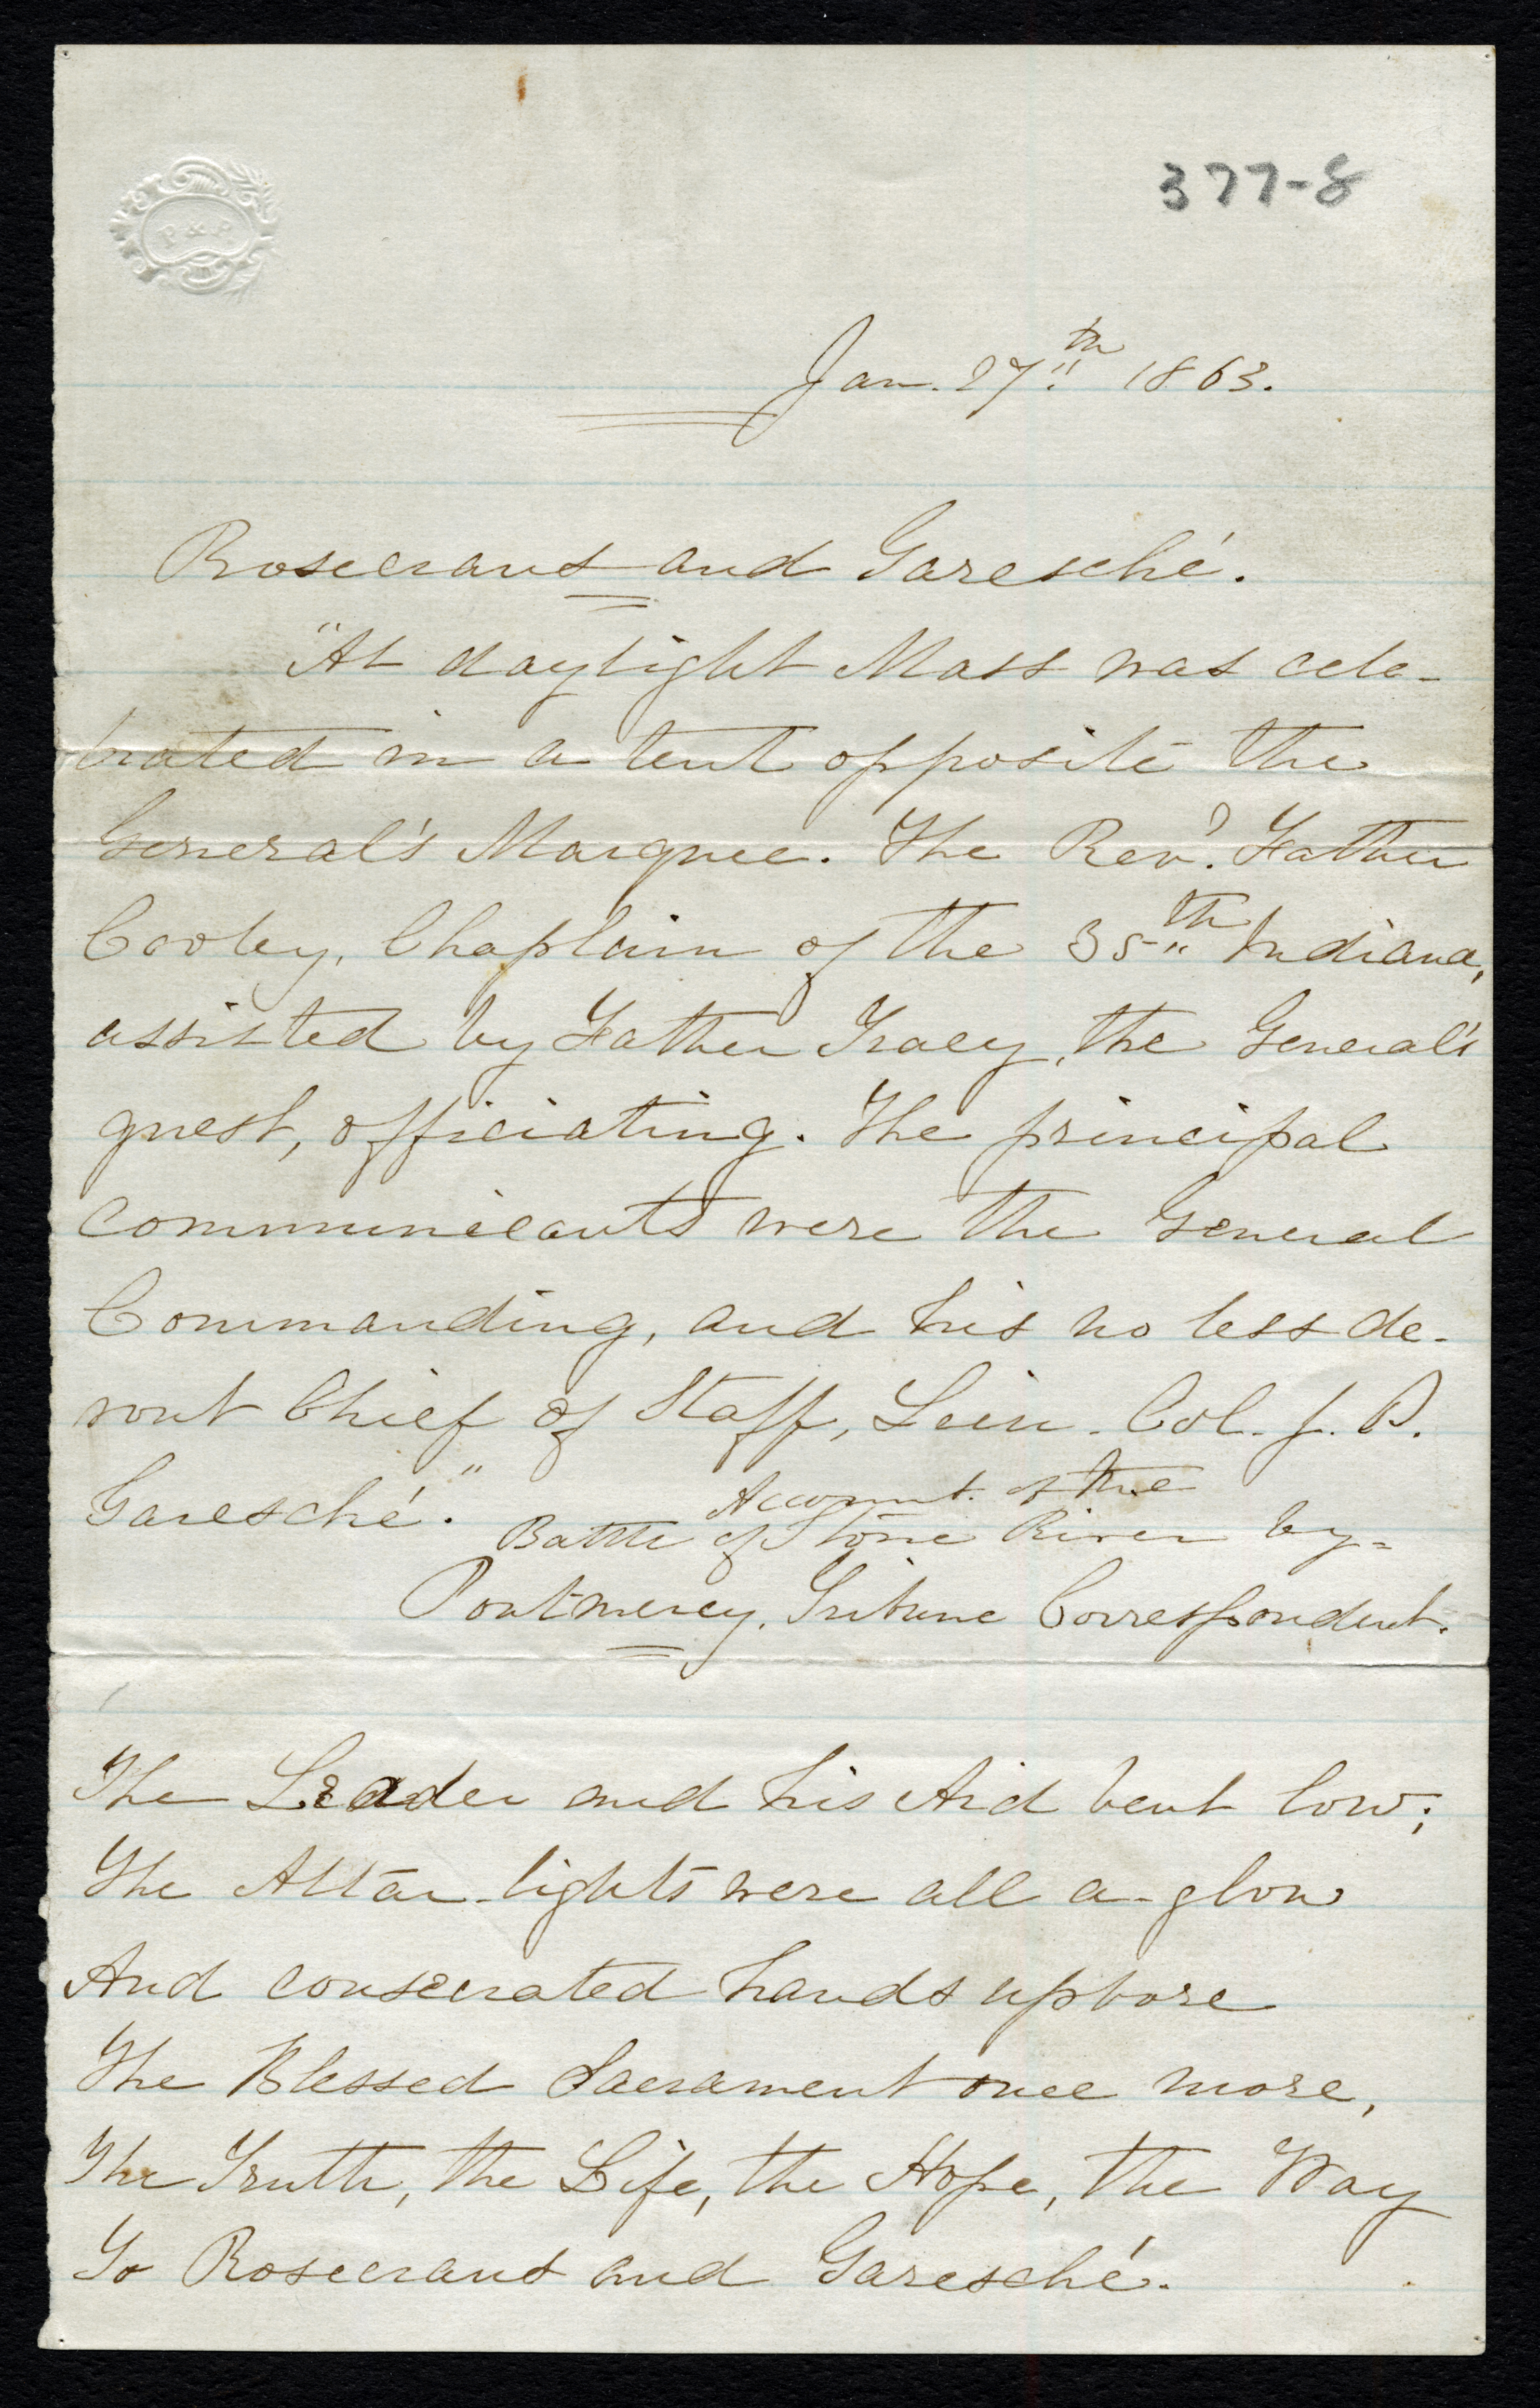 P & P
377-8
Jan. 27th 1863.
Rosecrans and Garesché.
"At daylight Mass was cele-
brated in a tent opposite the
General's Marquee. The Revd. Father
Cooley, Chaplain of the 35th Indiana,
assisted by Father Tracy, the General's
guest, officiating. The principal
communicants were the General
Commanding, and his no less de-
vout Chief of Staff, Lieu. Col. J. P.
Garesché."
Account of the
Battle of Stone River by-
Pontmercy, Tribune Correspondent.
The Leader and his Aid bent low;
The Altar-lights were all a-glow
And consecrated hands upbore
The Blessed Sacrament once more,
The Truth, the Life, the Hope, the Way
To Rosecrans and Garesché.